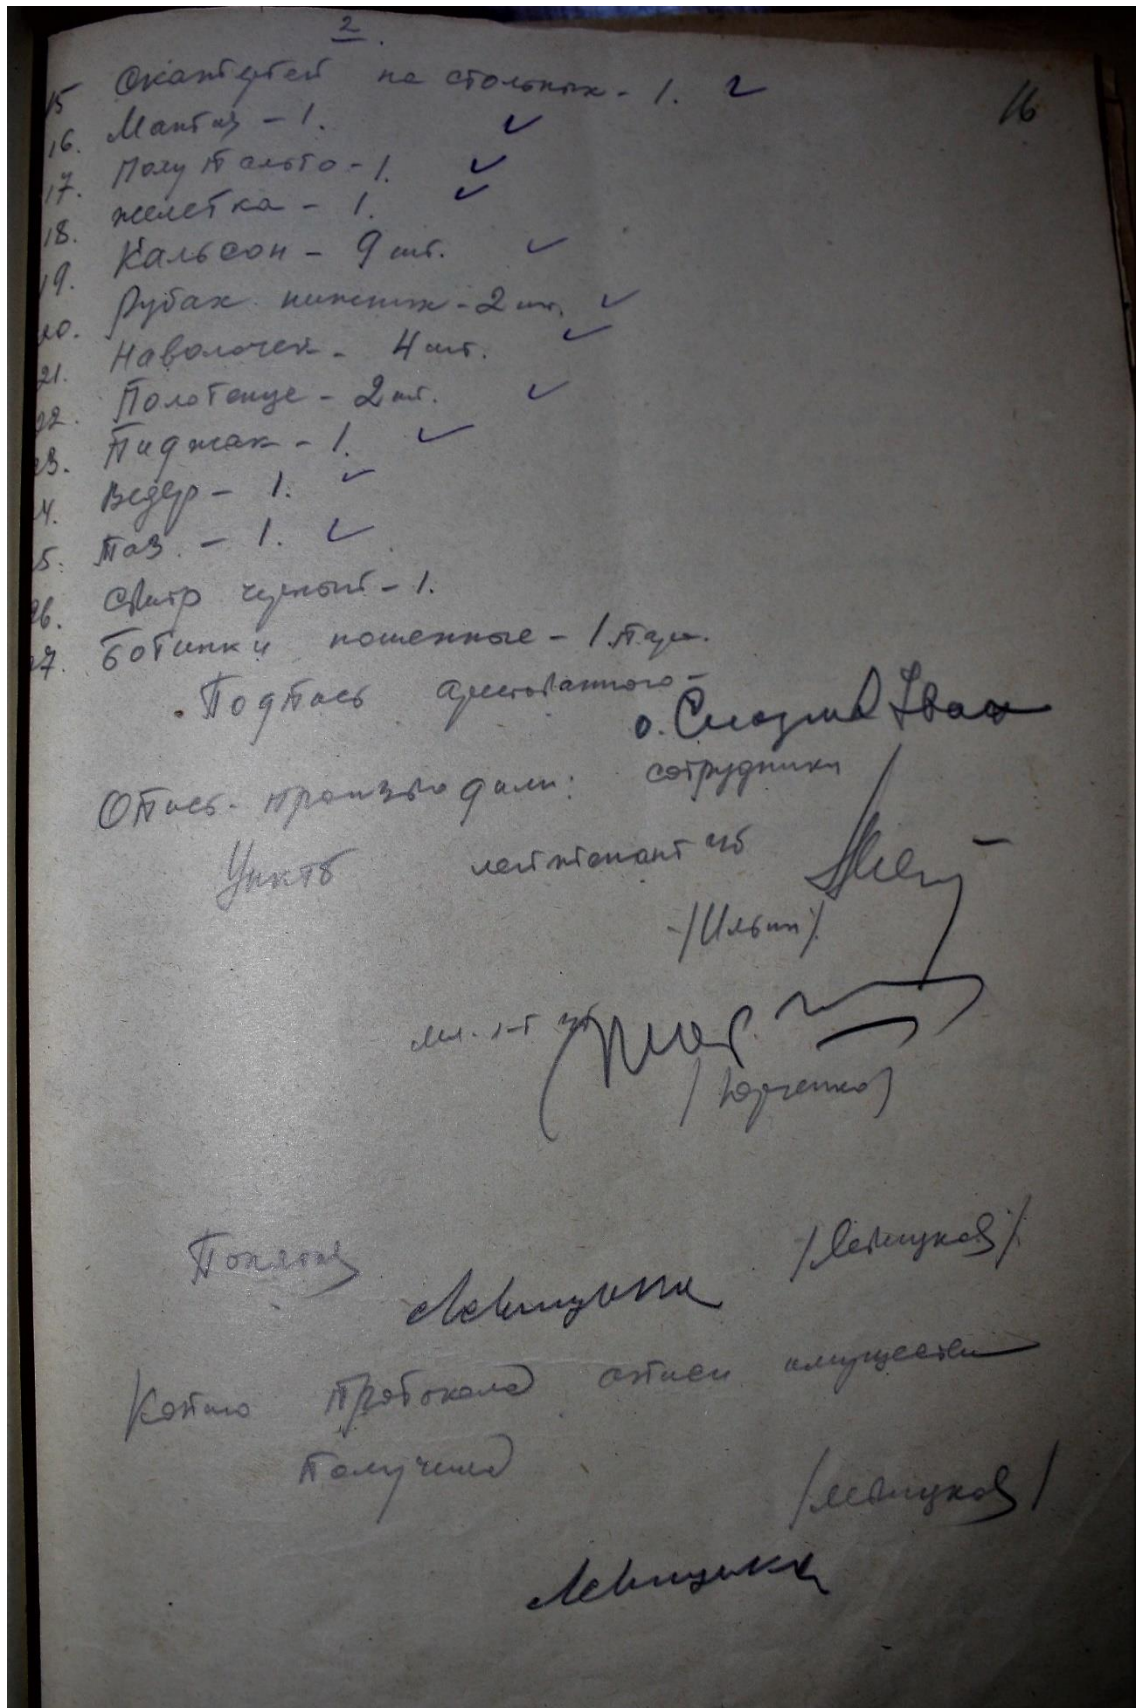 2.
16
15 Скатертей на стольных - 1.
16. Мантия - 1.
17. Полупальто - 1.
18. Жилетка - 1.
19. Кальсон - 9 шт.
20. Рубах нижних - 2 шт.
21. Наволочек - 4 шт.
22. Полотенце - 2 шт.
23. Пиджак - 1.
24. Ведер - 1.
25. Таз - 1.
26. Свитр черный - 1.
27. Ботинки ношенные - 1 пара.
Подпись арестованного -
о. Иван
Опись производили: сотрудники
УНКГБ лейтенант гб
/Ильин/
мл. л-т гб
/Юрченко/
Понятая /Левицкая/
Левицкая
Копию протокола описи имущества
получила
/Левицкая/
Левицкая